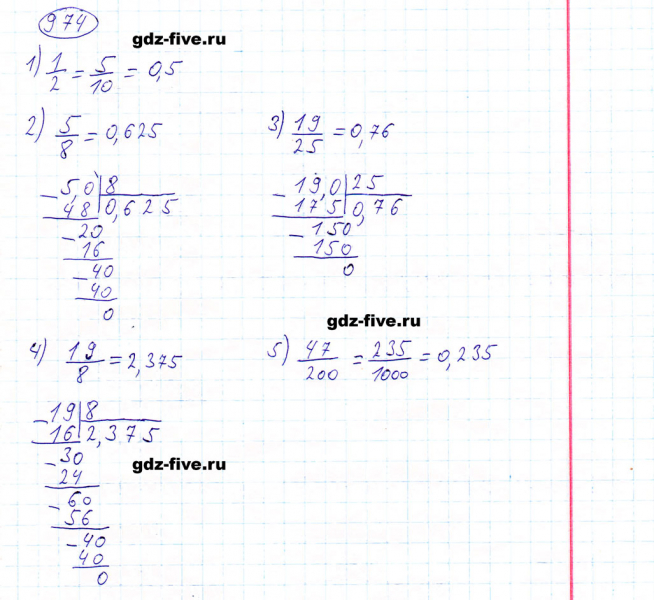 974
gdz-five.ru
1) 1/2 = 5/10 = 0,5
2) 5/8 = 0,625
3) 19/25 = 0,76
- 5,0 | 8
48 | 0,625
- 20
16
- 40
40
0
- 19,0 | 25
17 5 | 0,76
- 150
150
0
gdz-five.ru
4) 19/8 = 2,375
5) 47/200 = 235/1000 = 0,235
- 19 | 8
16 | 2,375
- 30
24
- 60
56
- 40
40
0
gdz-five.ru